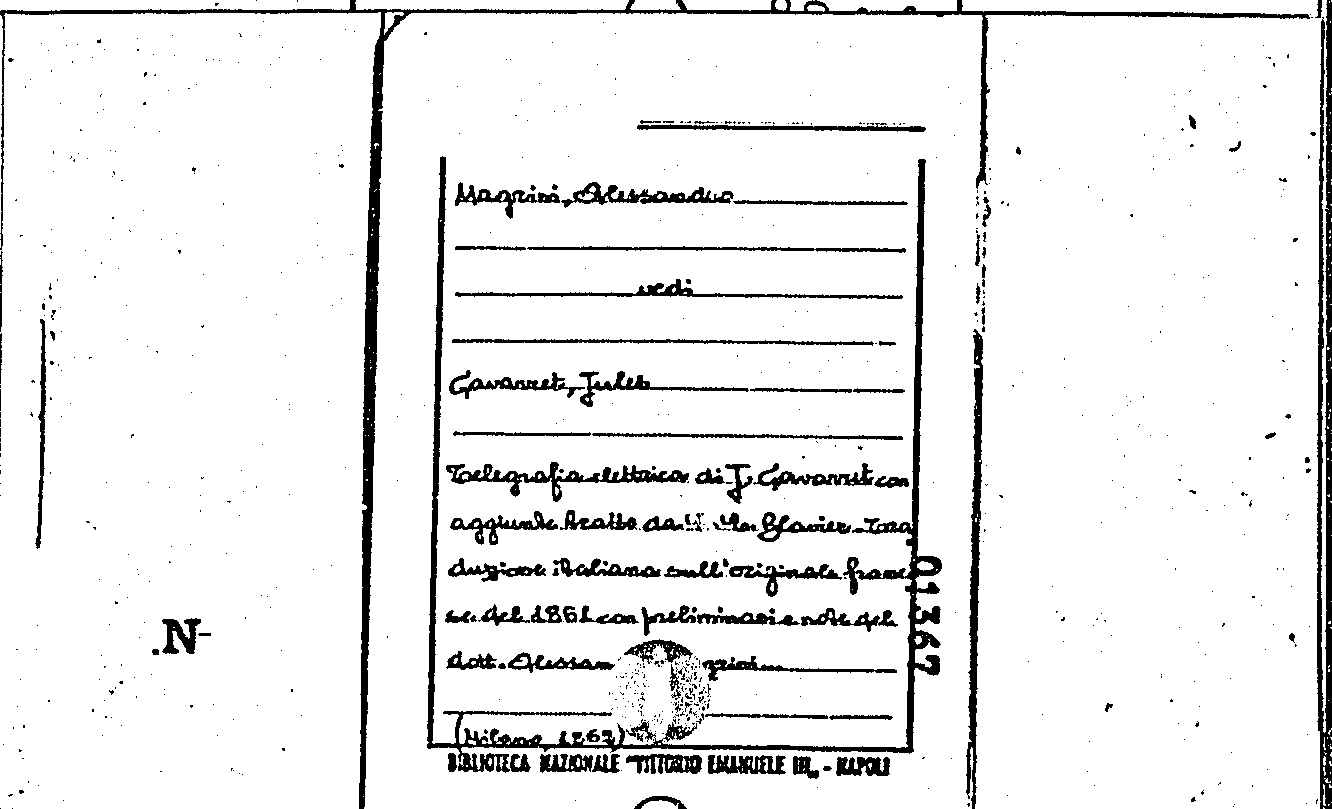 Magrini, Alessandro
vedi
Gavarret, Jules
Telegrafia elettrica di J. Gavarret con
aggiunte tratte da Blavier. Tra
duzione italiana sull'originale france
se del 1861 con preliminari e note del
dott. Alessan grini...
(Milano, 1862)
BIBLIOTECA NAZIONALE "VITTORIO EMANUELE III„ - NAPOLI
01367
.N-